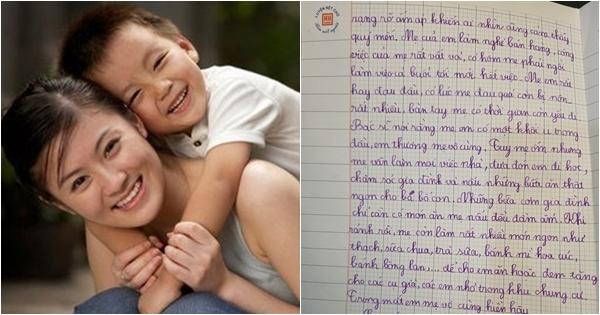 LUYỆN VIẾT CHỮ
rạng rỡ ấm áp khiến ai nhìn cũng cảm thấy
quý mến. Mẹ của em làm nghề bán hàng, công
việc của mẹ rất vất vả, có hôm mẹ phải ngồi
làm việc cả buổi tối mới hết việc. Mẹ em rất
hay đau đầu, có lúc mẹ đau quá còn bị nôn
rất nhiều, bàn tay mẹ có thời gian còn yếu đi.
Bác sĩ nói rằng mẹ em có một khối u trong
đầu, em thương mẹ vô cùng. Tuy mẹ ốm nhưng
mẹ vẫn làm mọi việc nhà, đưa đón em đi học,
chăm sóc gia đình và nấu những bữa ăn thật
ngon cho bố bà con. Những bữa cơm gia đình
chỉ cần có món ăn mẹ nấu đều đầm ấm. Khi
rảnh rỗi, mẹ còn làm rất nhiều món ngon như
thạch, sữa chua, trà sữa, bánh mì hoa cúc,
bánh bông lan,... để cho em ăn hoặc đem tặng
cho các cụ già, các em nhỏ trong khu chung cư.
Trong mắt em mẹ vô cùng hiền hậu